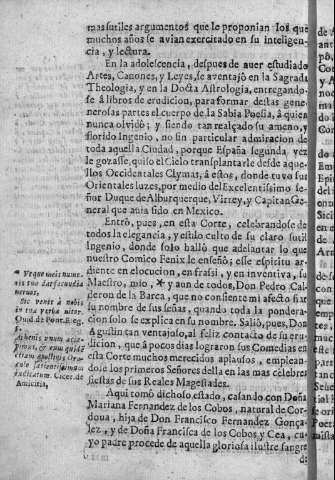 mas sutiles argumentos que le proponian los que
muchos años se avian exercitado en su inteligen-
cia, y lectura.
En la adolescencia, despues de auer estudiado
Artes, Canones, y Leyes, se aventajò en la Sagrada
Theologia, y en la Docta Astrologia, entregando-
se à libros de erudicion, para formar destas gene-
nerosas partes el cuerpo de la Sabia Poesia, à quien
nunca olvidò; y siendo tan realçado su ameno, y
florido Ingenio, no sin particular admiracion de
toda aquella Ciudad, porque España segunda vez
le gozasse, quiso el Cielo transplantarle desde aque-
llos Occidentales Clymas, à estos, donde tuvo sus
Orientales luzes, por medio del Excelentissimo se-
ñor Duque de Alburquerque, Virrey, y Capitan Ge-
neral que auia sido en Mexico.
Entrò, pues, en esta Corte, celebrandose de
todos la elegancia, y estilo culto de su claro sutil
Ingenio, donde solo hallò que adelantar lo que
nuestro Comico Fenix le enseñò; esse espiritu ar-
diente en elocucion, en frassi, y en inventiva, su
Maestro, mio, * y aun de todos, Don Pedro Cal-
deron de la Barca, que no consiente mi afecto fiar
su nombre de sus señas, quando toda la pondera-
cion solo se explica en su nombre. Saliò, pues, Don
Agustin tan ventajoso, al feliz contacto de su eru-
dicion, que à pocos dias lograron sus Comedias en
esta Corte muchos merecidos aplausos, emplean-
dose los primeros Señores della en las mas celebres
fiestas de sus Reales Magestades.
Aqui tomò dichoso estado, casando con Doña
Mariana Fernandez de los Cobos, natural de Cor-
doua, hija de Don Francisco Fernandez Gonça-
lez, y de Doña Francisca de los Cobos, y Cea, cu-
yo padre procede de aquella gloriosa ilustre sangre
de
* Vt que meis nume-
ris tua dat facundia
neruos,
Sic venit à nobis
in tua verba nitor.
Ouid. de Pont. Eleg.
5.
Cicer. de
Amicitia,